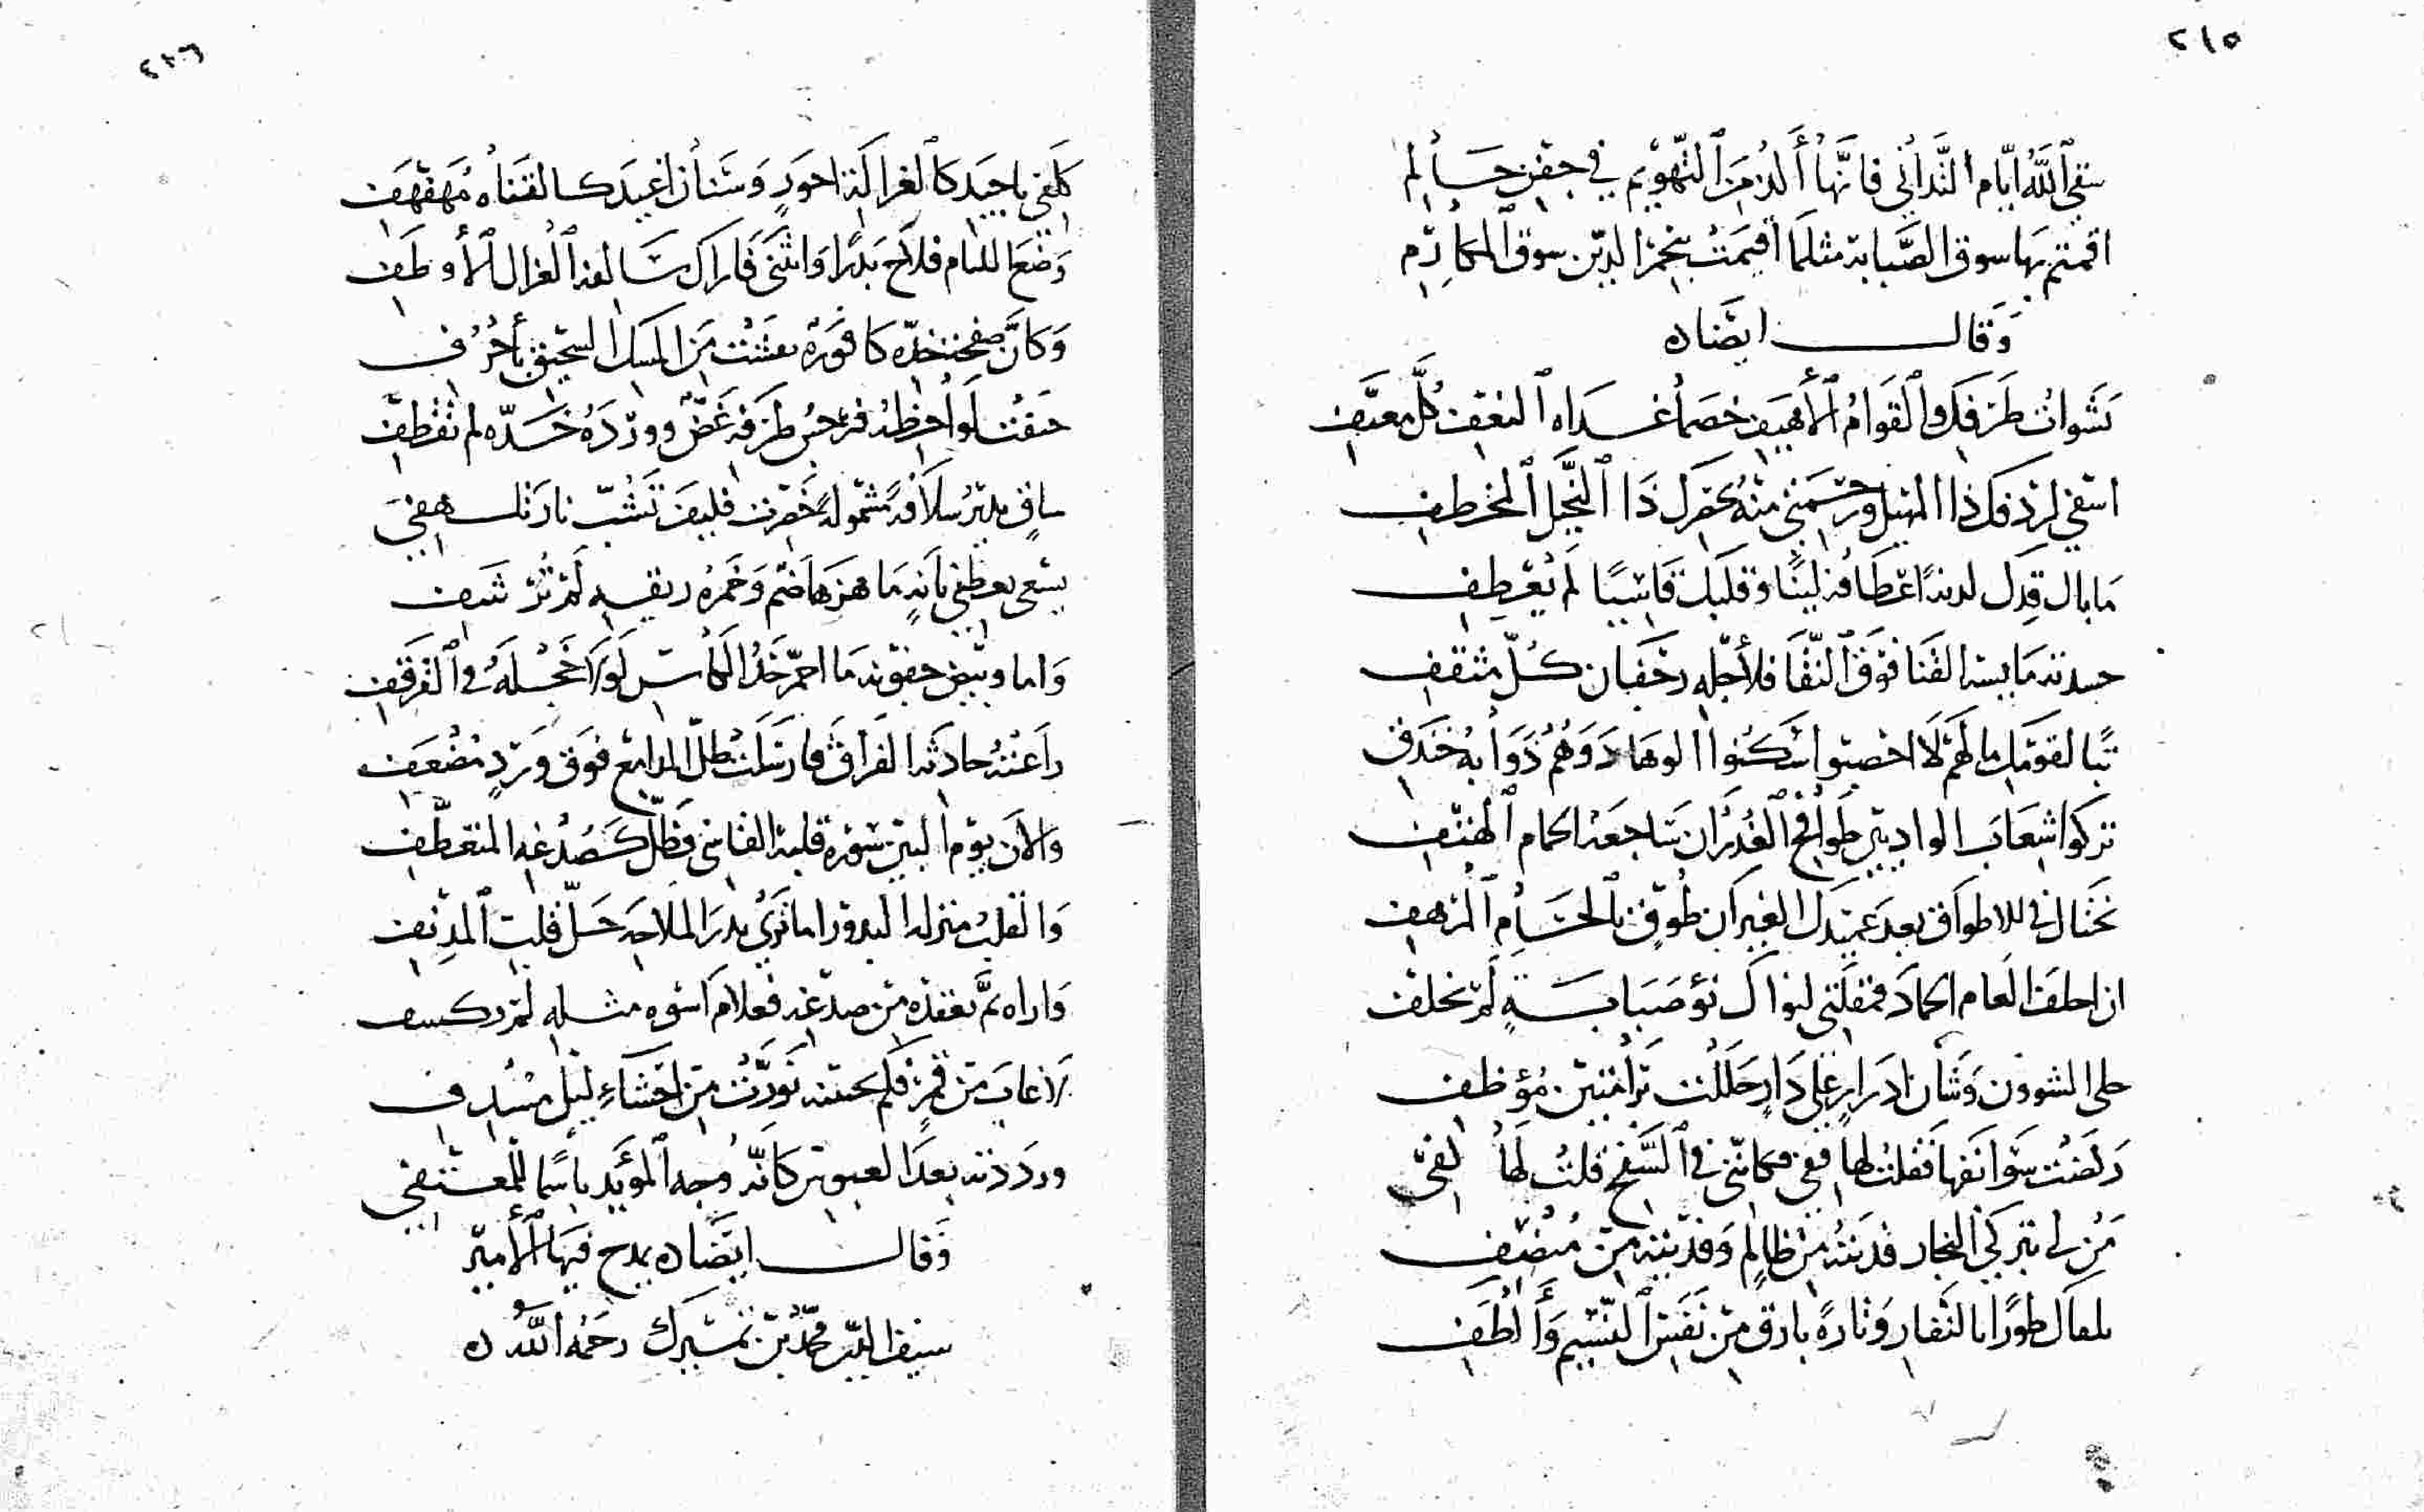 ٢١٥
سقى ٱللَّه ايّام النَّدانى فانَّها أَلذ مِنَ ٱلتَّهْويم في جفن حَالم
اقمتم بها سوق الصَّبابة مثلمَا أقيمَتْ بنجم الدين سوقُ ٱلمكارم
وَقَال ايضَاه
نَشوانُ طَرفك وٱلقوَامُ ٱلأَهيَف خصمَا غداه ٱلنعف كُلّ معنَّف
اشقى لردفك ذا المهيل ورحمتى منه لخصرك ذَا ٱلنَّحيل ٱلمخطف
مَا بال قدّك لدنة اعطَافه لينًا وقلبك قَاسيًا لم يُعْطف
حسدته مَايسه القَنا فوقَ ٱلنَّقَا فلأجله رخفَان كُلّ مثقف
تبًّا لقومك ما لهم لا اخصبوا سَكنوا الوهَاد وَهُمْ ذُوَابه خندف
تركوا شعَاب الواديين طوافح ٱلغُدرَان سَاجعة الحمام ٱلهتّف
تختال في الاطواق بعد عميدك الغيران طُوِّق بٱلحُسَام ٱلمرهف
ان اخلفَ العام الجمادَ فمقلتى لنواك نوْ صَبَابةٍ لَمْ تخلف
حلى الشوون وَشَان ادرارٍ على دَارٍ حَللت ترَا مُؤظف
ركضت سَوَابقها فقلتُ لها قفى فى ٱلسَّفح قلتُ لَهَا
مَن لى بتركى النجار فدَيتُه مِن ظالمٍ وَفديته مِن مُنْصف
يلقاكَ طورًا بالنَفار وَتارةً بارق مِن نَفَس ٱلنَّسيم وَأَلطَف
٢١٦
كلفى باجيد كٱلغزالة احوَرٍ وَسْنَان اغيَد كالقنَاه مُهَفهَف
وَضعَ اللثام فلاحَ بَدرًا وَانثنَى فَاراك سَالفة ٱلغزال ٱلأوطَف
وَكأنَّ صفحة خدّه كافورة نقشت مِنَ المسك السحيق بأحرُف
حنقت لوَاحظه فنرجسُ طَرفه غَضٌّ ووَردَه خَدّه لم تقطف
سَاقٍ يديرُ سُلَافةً مشمولةً حَضرت فليفَ تَشُبّ نار تلهفى
يسعى بعطفى بَانةٍ مَا هزهَا ضمّ وَخمرُه ريقه لَم ترشف
وَاما وَبيض حقوقه مَا احمرّ خَدّ الكأس لَولَا خجلة فى ٱلقرقف
راعَتْهُ حَادثَة الفراق فارسَلت طلّ المدامع فوق وَردٍ مُضْعَف
وَالآن يوم البين سَوره قلبه القاسى فظلّ كَصُدغه المتعطّف
وَالقلبُ منزله البدور اما تَرَى بدرَ الملاحَه حَلّ قلبَ ٱلمدنف
وَاراه تمَّ بعقدَه مِن صدغه فعلام اسوه مثله لم يكسف
لا غابَ مِن قمرٍ فكم بحتته تَوَدّت مِن احْشاءِ ليل مُسدف
ورَددته بعدَ العبوس كَأنّه وجه ٱلمؤيد باسمًا للمعتفى
وَقال ايضَاه يمدح فيهَا ٱلأمير
سيف الدين محمّد بن تمشرك رحمهُ ٱللَّه ه